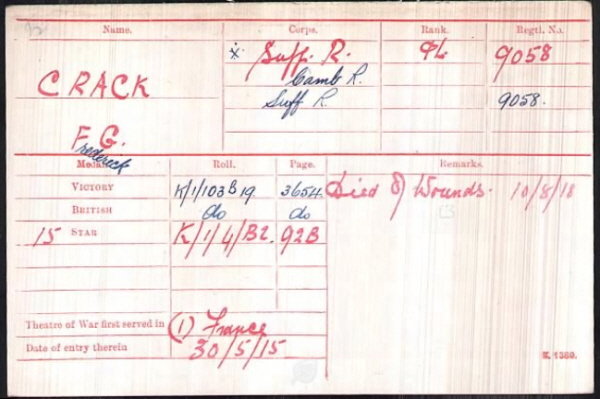 Name. Corps. Rank. Regtl. No.
* Suff. R. Pte 9058
Camb R.
CRACK Suff R. 9058.
F. G.
Frederick
Medal. Roll. Page. Remarks.
VICTORY K/1/103B19. 3654 Died of Wounds. 10/8/18
BRITISH do do
15 STAR K/1/4/B2. 92B
Theatre of War first served in (1) France
Date of entry therein 30/5/15.
K. 1380.